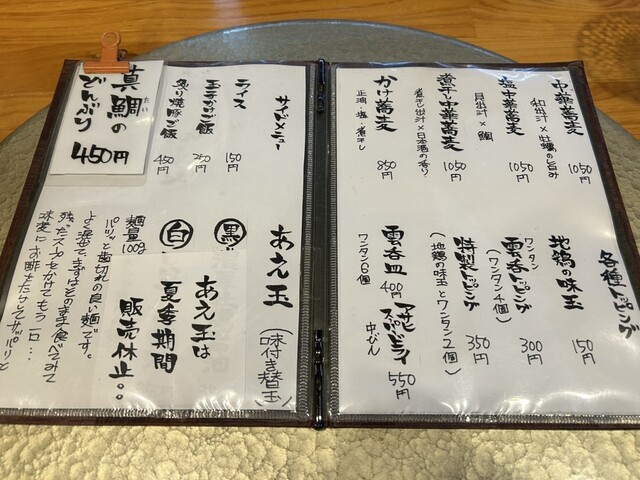 中華蕎麦
和出汁×牡蠣の旨み
1050円
塩中華蕎麦
貝出汁×鯛
1050円
煮干し中華蕎麦
煮干し出汁×日本酒の香り
1050円
かけ蕎麦
正油・塩・煮干し
850円
各種トッピング
地鶏の味玉
150円
雲呑トッピング
ワンタン
(ワンタン4個)
300円
特製トッピング
(地鶏の味玉とワンタン2個)
350円
雲呑皿
ワンタン6個
400円
アサヒスーパードライ
中びん
550円
サイドメニュー
ライス
150円
玉子かけご飯
250円
炙り焼豚ご飯
450円
真鯛の
たい
どんぶり
450円
あえ玉
(味付き替玉)
黒
白
あえ玉は
夏季期間
販売休止。。
麺量100g
パリッと歯切れの良い麺です。
よく混ぜてまずはそのまま食べてみて
残ったスープをかけてもう一口…
味変にお酢をたらしてサッパリと